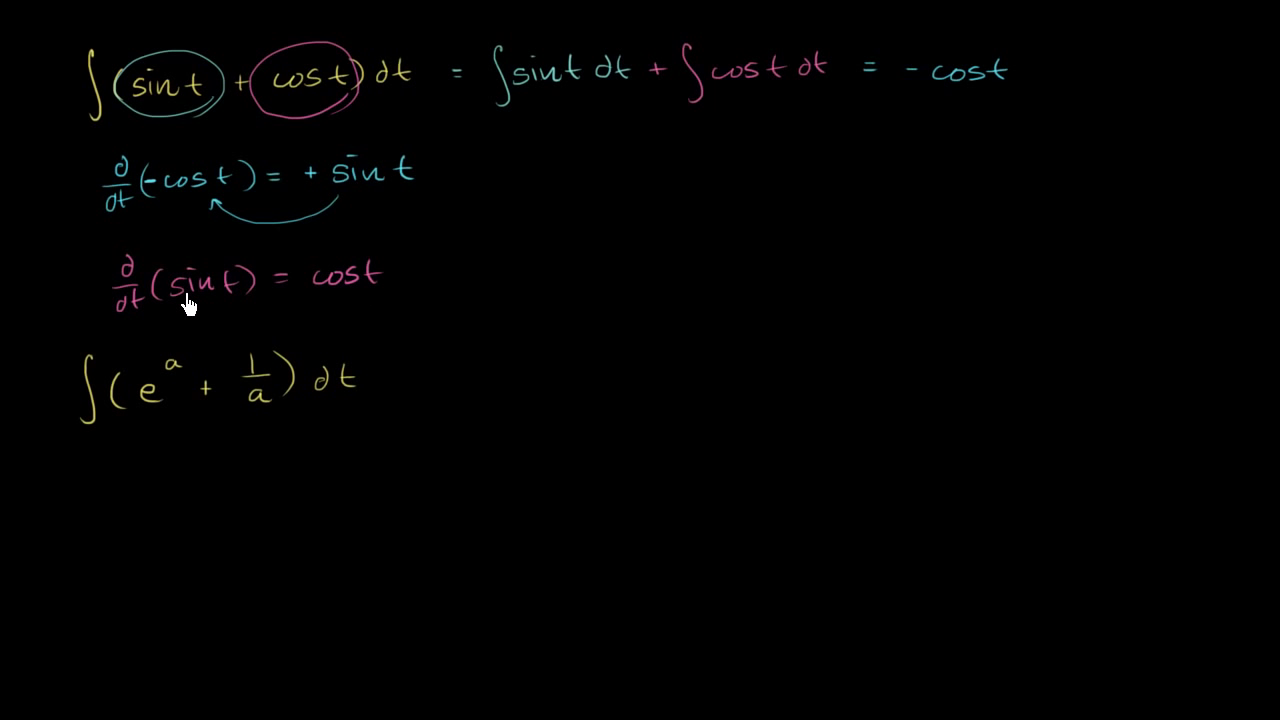 ∫(sin t + cos t) dt = ∫sin t dt + ∫cos t dt = - cos t
d/dt (-cos t) = + sin t
d/dt (sin t) = cos t
∫(e^a + 1/a) dt